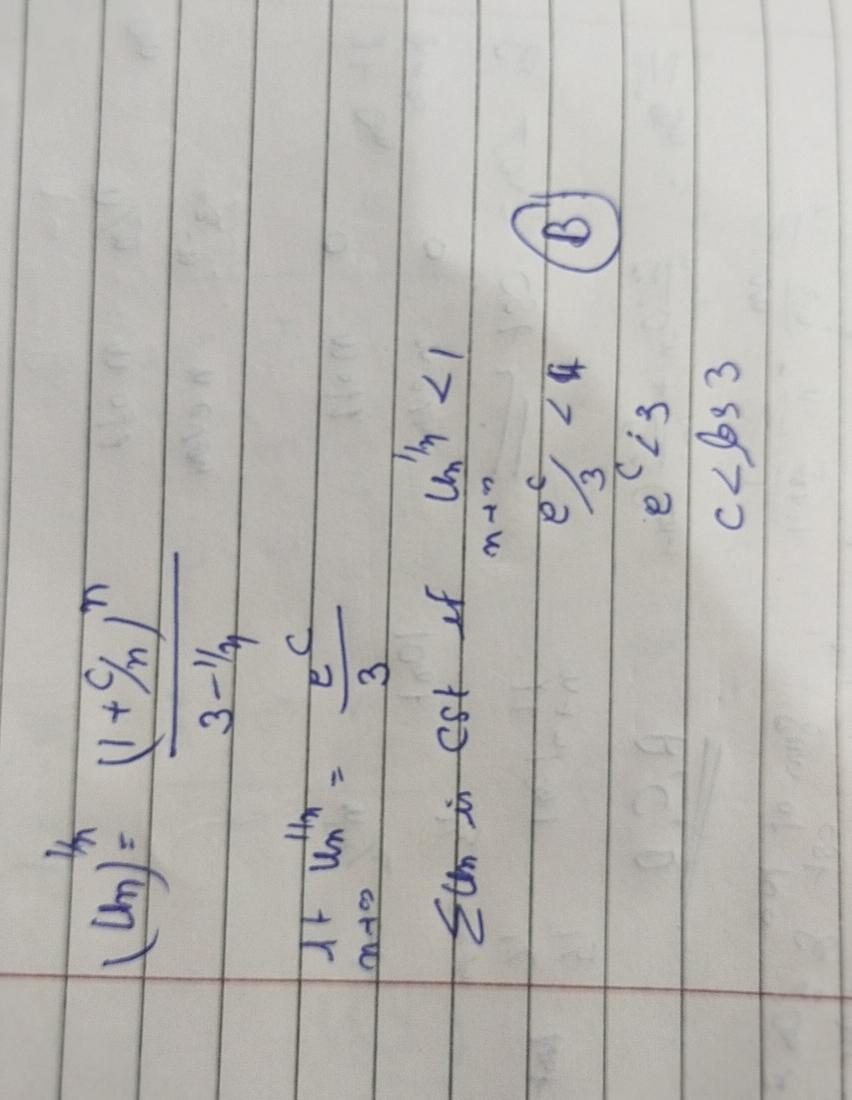 (Un)^1/n = (1 + c/n)^n / 3 - 1/n
lt n→∞ Un^1/n = e^c / 3
ΣUn is cgt if Un^1/n < 1
n→∞
e^c/3 < 1 B
e^c < 3
c < log 3